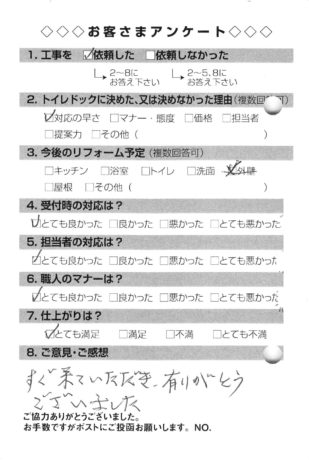 ◇◇◇お客さまアンケート◇◇◇
1. 工事を ☑依頼した □依頼しなかった
2~8に お答え下さい 2~5、8に お答え下さい
2. トイレドックに決めた、又は決めなかった理由(複数回答可)
☑対応の早さ □マナー・態度 □価格 □担当者
□提案力 □その他( )
3. 今後のリフォーム予定(複数回答可)
□キッチン □浴室 □トイレ □洗面 ☑外壁
□屋根 □その他( )
4. 受付時の対応は?
☑とても良かった □良かった □悪かった □とても悪かった
5. 担当者の対応は?
☑とても良かった □良かった □悪かった □とても悪かった
6. 職人のマナーは?
☑とても良かった □良かった □悪かった □とても悪かった
7. 仕上がりは?
☑とても満足 □満足 □不満 □とても不満
8. ご意見・ご感想
すぐ来ていただき、有りがとう
ございました
ご協力ありがとうございました。
お手数ですがポストにご投函お願いします。NO.